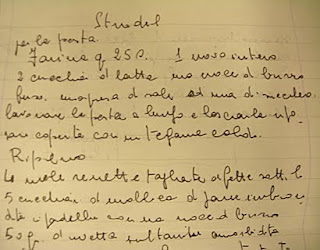 Strudel
per la pasta
Farina g 250. 1 uovo intero
2 cucchiai di latte una noce di burro
fuso, una presa di sale ed una di zucchero.
lavorare la pasta a lungo e lasciarla ripo
sare coperta con un tegame caldo.
Ripieno
4 mele renette tagliate a fette sottili
5 cucchiai di mollica di pane imbion
dita in padella con una noce di burro
50 g. di uvetta sultanina ammorbidita